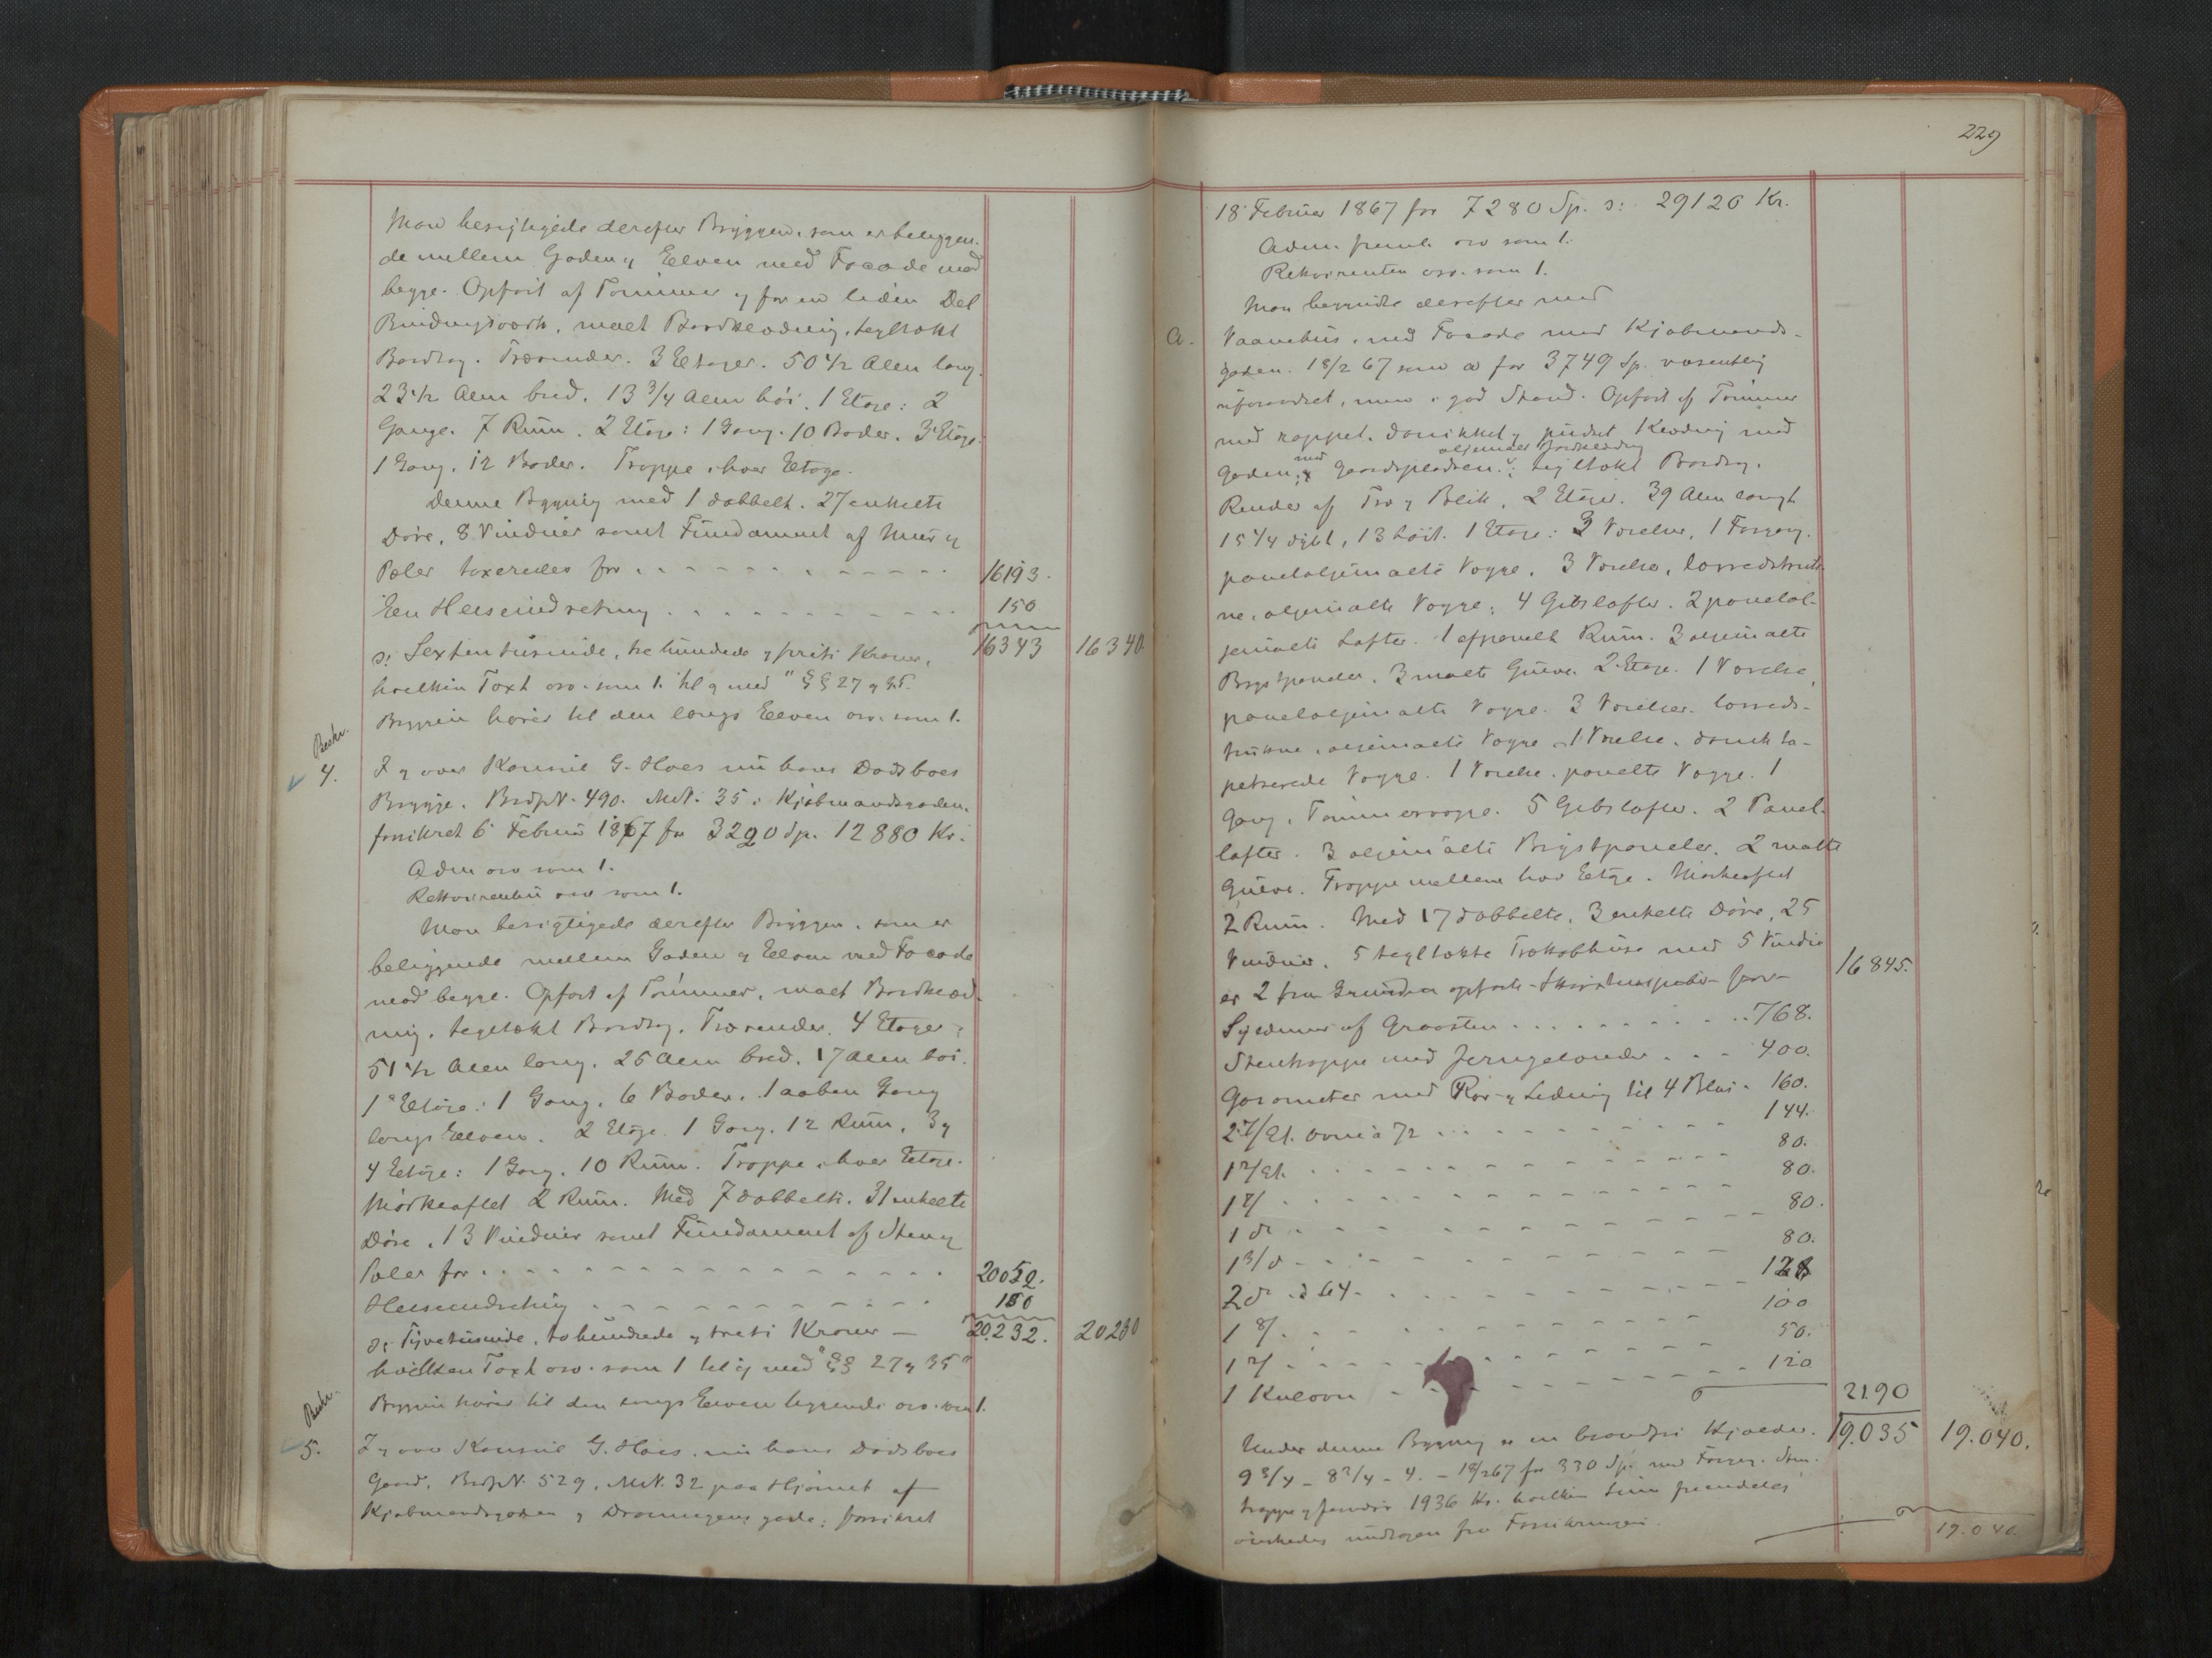 Man besigtigede derefter Bryggen, som er beliggen-
de mellem Gaden og Elven med Facade mod
begge. Opført af Tømmer og for en liden Del
Bindingsværk, malt Bordklædning, teglhækt
Bordtag. Trærender. 3 Etager. 50 1/2 Alen lang.
23 1/2 Alen bred. 13 3/4 Alen høi. 1 Etage: 2
Gange. 7 Rum. 2 Etage: 1 Gang. 10 Boder. 3 Etage:
1 Gang. 12 Boder. Trappe i hver Etage.
Denne Bygning med 1 dobbelt. 27 enkelte
Døre, 8 Vinduer samt Fundament af Mur og
Pæler taxeredes for 16193.
Een Heiseindretning 150
16343 16340
ɔ: Sexten tusinde, tre hundrede og firti Kroner,
hvilken Taxt osv. som 1. til og med "§§ 27 og 35."
Bryggen hører til den langs Elven osv. som 1.
Beskr.
4. I og over Konsul G. Hoes nu hans Dødsboes
Brygge. BrdpN. 490. MN. 35 i Kjøbmandsgaden.
forsikret 6 Februar 1867 for 3220 Sp. 12880 Kr.
Adm osv som 1.
Rekvirenten osv som 1.
Man besigtigede derefter Bryggen, som er
beliggende mellem Gaden og Elven med Facade
mod begge. Opført af Tømmer, malt Bordklæd-
ning, tegltækt Bordtag. Trærender. 4 Etager.
51 1/2 Alen lang. 25 Alen bred. 17 Alen høi.
1 Etage: 1 Gang. 6 Boder. 1 aaben Gang
langs Elven. 2 Etage 1 Gang. 12 Rum. 3 og
4 Etage: 1 Gang. 10 Rum. Trappe i hver Etage.
Mørkeloftet 2 Rum. Med 7 dobbelte. 31 enkelte
Døre. 13 Vinduer samt Fundament af Sten og
Pæler for 20052.
Heiseindretning 180
ɔ: Tyvetusinde, tohundrede og treti Kroner — 20.232. 20230
hvilken Taxt osv. som 1 til og med "§§ 27 og 35"
Bryggen hører til den langs Elven liggende osv. som 1.
Beskr.
5. I og over Konsul G. Hoes, nu hans Dødsboes
Gaard. BrdpN. 529. MN. 32 paa Hjørnet af
Kjøbmandsgaden og Dronningens gade: forsikret
229
18 Februar 1867 for 7280 Sp. ɔ: 29120 Kr.
Adm. fremb. osv som 1.
Rekvirenten osv. som 1.
Man begyndte derefter med
a. Vaanehus, med Facade mod Kjøbmands-
gaden. 18/2 67 som a for 3749 Sp. væsentlig
uforandret, men i god Stand. Opført af Tømmer
med rappet, og pudset Klædning mod
Gaden, mod Gaardspladsen oljemalet Bordklædning; tegltækt Bordtag.
Render af Træ og Blik. 2 Etager. 39 Alen langt
15 1/4 dybt, 13 høit. 1 Etage: 3 Værelser, 1 Forgang.
paneloljemalte Vægge. 3 Værelser, lærredstrukk-
ne, oljemalte Vægge; 4 Gibslofter. 2 panelol-
jemalte Lofter. 1 afpanelt Rum. 3 oljemalte
Brystpaneler. 3 malte Gulve. 2 Etage. 1 Værelse,
paneloljemalte Vægge. 3 Værelser. lærreds-
trukne, oljemalte Vægge. 1 Værelse, ta-
petserede Vægge. 1 Værelse. panelte Vægge. 1
Gang, Tømmervægge. 5 Gibslofter. 2 Panel-
lofter. 3 oljemalte Brystpaneler. 2 malte
Gulve. Trappe mellem hver Etage. Mørkeloftet
2 Rum. Med 17 dobbelte, 3 enkelte Døre, 25
Vinduer. 5 tegltækte Trækobhuse med 5 Vinduer
er 2 fra Grunden opførte Skorstenspiber for 16845.
Syldmur af Graasten 768.
Stentrappe med Jerngelænder 400.
Gasometer med Rør og Ledning til 4 Blus 160.
2 Et. Ovne à 72 144.
1 Et. 80.
1 80.
1 do 80.
1 3/d 80.
2 do à 64 128
1 8/ 100
1 2/ 50.
1 Kulovn 120
2190
19.035 19.040.
Under denne Bygning er en brandfri Kjælder.
9 3/4 - 8 3/4 - 4. - 18/2 67 for 330 Sp. med
1936 Kr. hvilken fremdeles
ønskedes undtagen fra Forsikringen.
19.040